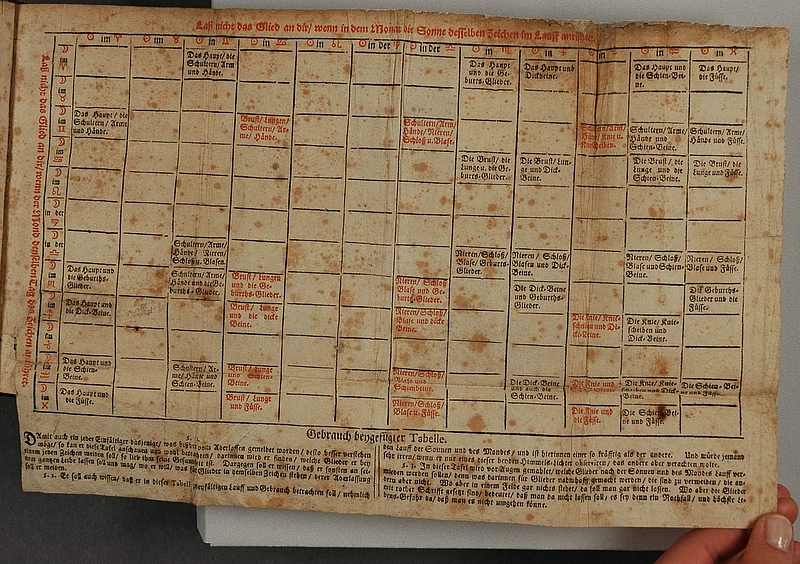 Laß nicht das Glied an dir/ wenn in dem Monat die Sonne desselben Zeichen im Lauff anrühret.
Laß nicht das Glied an dir/ wenn der Mond denselben Tag das Zeichen anrühret.
☉ im ♈ ☉ im ♉ ☉ im ♊ ☉ im ♋ ☉ im ♌ ☉ in der ♍ ☉ in der ♎ ☉ im ♏ ☉ im ♐ ☉ im ♑ ☉ im ♒ ☉ im ♓
☽ im ♈
Das Haupt/ die
Schultern/ Arm
und Hände.
Das Haupt
und die Ge-
burts-Glieder.
Das Haupt und
Dickbeine.
Das Haupt und
die Schien-Bei-
ne.
Das Haupt/
die Füsse.
☽ im ♉
☽ im ♊
Das Haupt / die
Schultern / Arme
und Hände.
Brust/ Lungen/
Schultern/ Ar-
me/ Hände.
Schultern/ Arm/
Hände/ Nieren/
Schloß u. Blase.
Schultern/ Arm/
Händ/ Knie u.
Schultern/ Arme/
Hände und
Schien-Beine.
Schultern/ Arme/
Hände und Füsse.
☽ im ♋
Die Brust/ die
Lunge u. die Ge-
burts-Glieder.
Die Brust/ Lun-
ge und Dick-
Beine.
Die Brust/ die
Lunge und die
Schien-Beine.
Die Brust/ die
Lunge und Füsse.
☽ im ♌
☽ in der ♍
☽ in der ♎
Schultern/ Arme/
Hände/ Nieren/
Schloß u. Blasen.
Nieren/ Schloß/
Blase/ Geburts-
Glieder.
Nieren/ Schloß/
Blasen und Dick-
Beine.
Nieren/ Schloß/
Blase und Schien-
Beine.
Nieren / Schloß/
Blase und Füsse.
☽ im ♏
Das Haupt und
die Geburths-
Glieder.
Schultern/ Arme/
Hände und die Ge-
burths-Glieder.
Brust/ Lungen
und die Ge-
burths-Glieder.
Nieren/ Schloß/
Blase und Ge-
burts-Glieder.
Die Dick-Beine
und Geburths-
Glieder.
Die Geburths-
Glieder und die
Füsse.
☽ im ♐
Das Haupt und
die Dick-Beine.
Brust/ Lunge
und die dicke
Beine.
Nieren/ Schloß/
Blase und dicke
Beine.
Die Knie/ Knie-
scheiben und Di-
cke-Beine.
Die Knie/ Knie-
scheiben und
Dick-Beine.
☽ im ♑
☽ im ♒
Das Haupt und
die Schien-
Beine.
Schultern/ Ar-
me/ Hände und
Schien-Beine.
Brust/ Lunge
und Schien-
Beine.
Nieren/ Schloß/
Blase und
Schienbeine.
Die Dick-Beine
und auch die
Schien-Beine.
Die Knie und
Die Knie/ Knie-
Beine.
Die Schien-Bei-
ne und Füsse.
☽ im ♓
Das Haupt und
die Füsse.
Brust/ Lunge
und Füsse.
Nieren/ Schloß/
Blase u. Füsse.
Die Knie und
die Füsse.
Die Schien-Bei-
ne und Füsse.
Gebrauch beygefügter Tabelle.
§. 1.
DAmit auch ein jeder Einfältiger dasjenige/ was bißhero vom Aderlassen gemeldet worden / desto besser verstehen
möge/ so kan er diese Tafel anschauen und wohl betrachten/ darinnen wird er finden/ welche Glieder er bey
einem jeden Zeichen meiden soll/ so lieb ihm seine Gesundheit ist. Dargegen soll er wissen/ daß er sonsten an sei-
nem gantzen Leibe lassen soll und mag/ wo er will/ was für Glieder in demselben Zeichen stehen/ derer Aderlassung
soll er meiden.
§. 2. Er soll auch wissen/ daß er in dieser Tabell zweyfältigen Lauff und Gebrauch betrachten soll / nehmlich
den Lauff der Sonnen und des Mondes/ und ist hierinnen einer so kräfftig als der andere. Und würde jemand
sehr irren/ wenn er nur eines dieser beyden Himmels-Lichter observiren/ das andere aber verachten wolte.
§. 3. In dieser Tafel wird vor Augen gemahlet/ welche Glieder nach der Sonnen und des Mondes Lauff ver-
mieden werden sollen/ denn was darinnen für Glieder nahmhafft gemacht werden / die sind zu vermeiden/ die an-
dern aber nicht. Wo aber in einem Felde gar nichts stehet/ da soll man gar nicht lassen. Wo aber die Glieder
mit rother Schrifft gesetzt sind/ bedeutet/ daß man da nicht lassen soll/ es sey denn ein Nothfall/ und höchste Le-
bens-Gefahr da/ daß man es nicht umgehen könne.